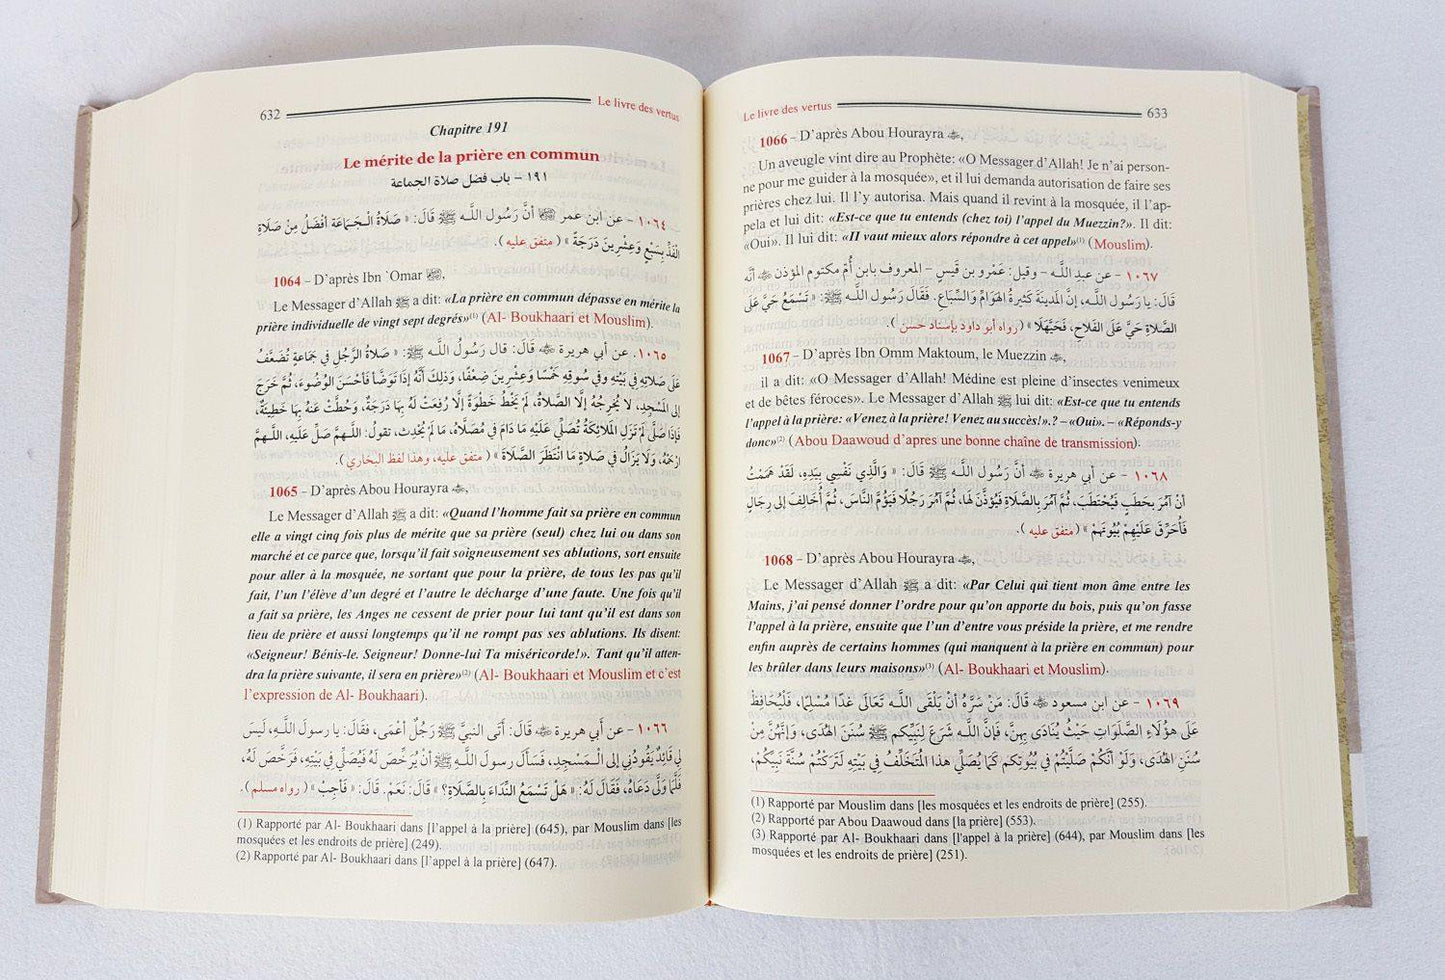 632 Le livre des vertus
Chapitre 191
Le mérite de la prière en commun
١٩١ – باب فضل صلاة الجماعة
١٠٦٤ – عن ابن عمر ﷺ أَنَّ رَسُول اللَّـه ﷺ قَالَ: « صَلَاةُ الْـجَـمَاعَة أَفْضَلُ مِنْ صَلَاةِ
الْفَذِّ بِسَبْعٍ وَعِشْرِينَ دَرَجَةً » ( متفق عليه ).
1064 – D’après Ibn `Omar,
Le Messager d’Allah ﷺ a dit: «La prière en commun dépasse en mérite la
prière individuelle de vingt sept degrés»(1) (Al- Boukhaari et Mouslim).
١٠٦٥. عن أبي هريرة قَالَ: قال رَسُولُ اللَّـه ﷺ: « صَلَاةُ الرَّجُلِ فِي جَمَاعَةٍ تُضَعَّفُ
عَلَى صَلَاتِهِ فِي بَيْتِهِ وَفِي سُوقِهِ خَمْسًا وَعِشْرِينَ ضِعْفًا، وَذلِكَ أَنَّهُ إِذَا تَوَضَّأَ فَأَحْسَنَ الْوُضُوءَ، ثُمَّ خَرَجَ
إِلَى الْمَسْجِدِ، لَا يُخْرِجُهُ إِلَّا الصَّلَاةُ، لَمْ يَخْطُ خَطْوَةً إِلَّا رُفِعَتْ لَهُ بِهَا دَرَجَةٌ، وَحُطَّتْ عَنْهُ بِهَا خَطِيئَةٌ،
فَإِذَا صَلَّى لَمْ تَزَلِ الْمَلَائِكَةُ تُصَلِّي عَلَيْهِ مَا دَامَ فِي مُصَلَّاهُ، مَا لَمْ يُحْدِث، تقولُ: اللَّـهمَّ صَلِّ عَلَيهِ، اللَّـهمَّ
ارْحَمْهُ، وَلَا يَزَالُ فِي صَلَاةٍ مَا انْتَظَرَ الصَّلَاةَ » ( متفق عليه، وهذا لفظ البخاري ).
1065 – D’après Abou Hourayra,
Le Messager d’Allah ﷺ a dit: «Quand l’homme fait sa prière en commun
elle a vingt cinq fois plus de mérite que sa prière (seul) chez lui ou dans son
marché et ce parce que, lorsqu’il fait soigneusement ses ablutions, sort ensuite
pour aller à la mosquée, ne sortant que pour la prière, de tous les pas qu’il
fait, l’un l’élève d’un degré et l’autre le décharge d’une faute. Une fois qu’il
a fait sa prière, les Anges ne cessent de prier pour lui tant qu’il est dans son
lieu de prière et aussi longtemps qu’il ne rompt pas ses ablutions. Ils disent:
«Seigneur! Bénis-le. Seigneur! Donne-lui Ta miséricorde!». Tant qu’il atten-
dra la prière suivante, il sera en prière»(2) (Al- Boukhaari et Mouslim et c’est
l’expression de Al- Boukhaari).
١٠٦٦ – عن أَبي هريرة قَالَ: أَتَى النبيَّ ﷺ رَجُلٌ أَعْمَى، فقَالَ: يا رسولَ اللَّـهِ، لَيسَ
لِي قَائِدٌ يَقُودُنِي إِلَى الْـمَـسْجِدِ، فَسَأَلَ رسولَ اللَّـهِ ﷺ أَنْ يُرَخِّصَ لَهُ فَيُصَلِّي فِي بَيْتِهِ، فَرَخَّصَ لَهُ،
فَلَمَّا وَلَّى دَعَاهُ، فَقَالَ لَهُ: « هَلْ تَسْمَعُ النِّدَاءَ بِالصَّلَاةِ؟ » قَالَ: نَعَمْ. قَالَ: « فَأَجِبْ » ( رواه مسلم ).
(1) Rapporté par Al- Boukhaari dans [l’appel à la prière] (645), par Mouslim dans [les
mosquées et les endroits de prière] (249).
(2) Rapporté par Al- Boukhaari dans [l’appel à la prière] (647).
Le livre des vertus 633
1066 – D’après Abou Hourayra,
Un aveugle vint dire au Prophète: «O Messager d’Allah! Je n’ai person-
ne pour me guider à la mosquée», et il lui demanda autorisation de faire ses
prières chez lui. Il l’y autorisa. Mais quand il revint à la mosquée, il l’ap-
pela et lui dit: «Est-ce que tu entends (chez toi) l’appel du Muezzin?». Il dit:
«Oui». Il lui dit: «Il vaut mieux alors répondre à cet appel»(1) (Mouslim).
١٠٦٧ – عن عبد اللَّـه – وقيل: عَمْرو بن قَيسٍ – المعروف بابن أُمِّ مكتوم المؤذن أنَّه
قَالَ: يا رَسُولَ اللَّـه، إنَّ الْمَدينَةَ كَثيرَةُ الْهَوَامِّ وَالسِّبَاع. فَقَالَ رَسُولُ اللَّـه ﷺ: « تَسْمَعُ حَيَّ عَلَى
الصَّلاةِ حَيَّ عَلَى الْفَلاحِ، فَحَيَّهَلًا » ( رواه أبو داود بإسناد حسن ).
1067 – D’après Ibn Omm Maktoum, le Muezzin,
il a dit: «O Messager d’Allah! Médine est pleine d’insectes venimeux
et de bêtes féroces». Le Messager d’Allah ﷺ lui dit: «Est-ce que tu entends
l’appel à la prière: «Venez à la prière! Venez au succès!».? – «Oui». – «Réponds-y
donc»(2) (Abou Daawoud d’apres une bonne chaîne de transmission).
١٠٦٨ – عن أبي هريرة أَنَّ رَسُولَ اللَّـه ﷺ قَالَ: « وَالَّذِي نَفْسِي بِيَدِهِ، لَقَدْ هَمَمْتُ
أَنْ آمُرَ بِحَطَبٍ فَيُحْتَطَبَ، ثُمَّ آمُرَ بِالصَّلَاةِ فَيُؤَذَّنَ لَهَا، ثُمَّ آمُرَ رَجُلًا فَيَؤُمَّ النَّاسَ، ثُمَّ أُخَالِفَ إِلَى رِجَالٍ
فَأُحَرِّقَ عَلَيْهِمْ بُيُوتَهُمْ » ( متفق عليه ).
1068 – D’après Abou Hourayra,
Le Messager d’Allah ﷺ a dit: «Par Celui qui tient mon âme entre les
Mains, j’ai pensé donner l’ordre pour qu’on apporte du bois, puis qu’on fasse
l’appel à la prière, ensuite que l’un d’entre vous préside la prière, et me rendre
enfin auprès de certains hommes (qui manquent à la prière en commun) pour
les brûler dans leurs maisons»(3) (Al- Boukhaari et Mouslim).
١٠٦٩ – عن ابن مسعود قَالَ: مَنْ سَرَّهُ أَنْ يَلْقَى اللَّـهَ تَعَالَى غَدًا مُسْلِمًا، فَلْيُحَافِظْ
عَلَى هَؤُلَاءِ الصَّلَوَاتِ حَيْثُ يُنَادَى بِهِنَّ، فَإِنَّ اللَّـهَ شَرَعَ لِنَبِيِّكم ﷺ سُنَنَ الْهُدَى، وَإِنَّهُنَّ مِنْ
سُنَنِ الْهُدَى، وَلَوْ أَنَّكُمْ صَلَّيْتُمْ فِي بُيُوتِكم كَمَا يُصَلِّي هذا الْمُتَخَلِّفُ فِي بَيْتِهِ لَتَرَكْتُمْ سُنَّةَ نَبِيِّكُمْ،
(1) Rapporté par Mouslim dans [les mosquées et les endroits de prière] (255).
(2) Rapporté par Abou Daawoud dans [la prière] (553).
(3) Rapporté par Al- Boukhaari dans [l’appel à la prière] (644), par Mouslim dans [les
mosquées et les endroits de prière] (251).